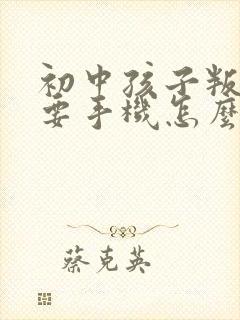 初中孩子叛
要手機怎麼
蔡克英